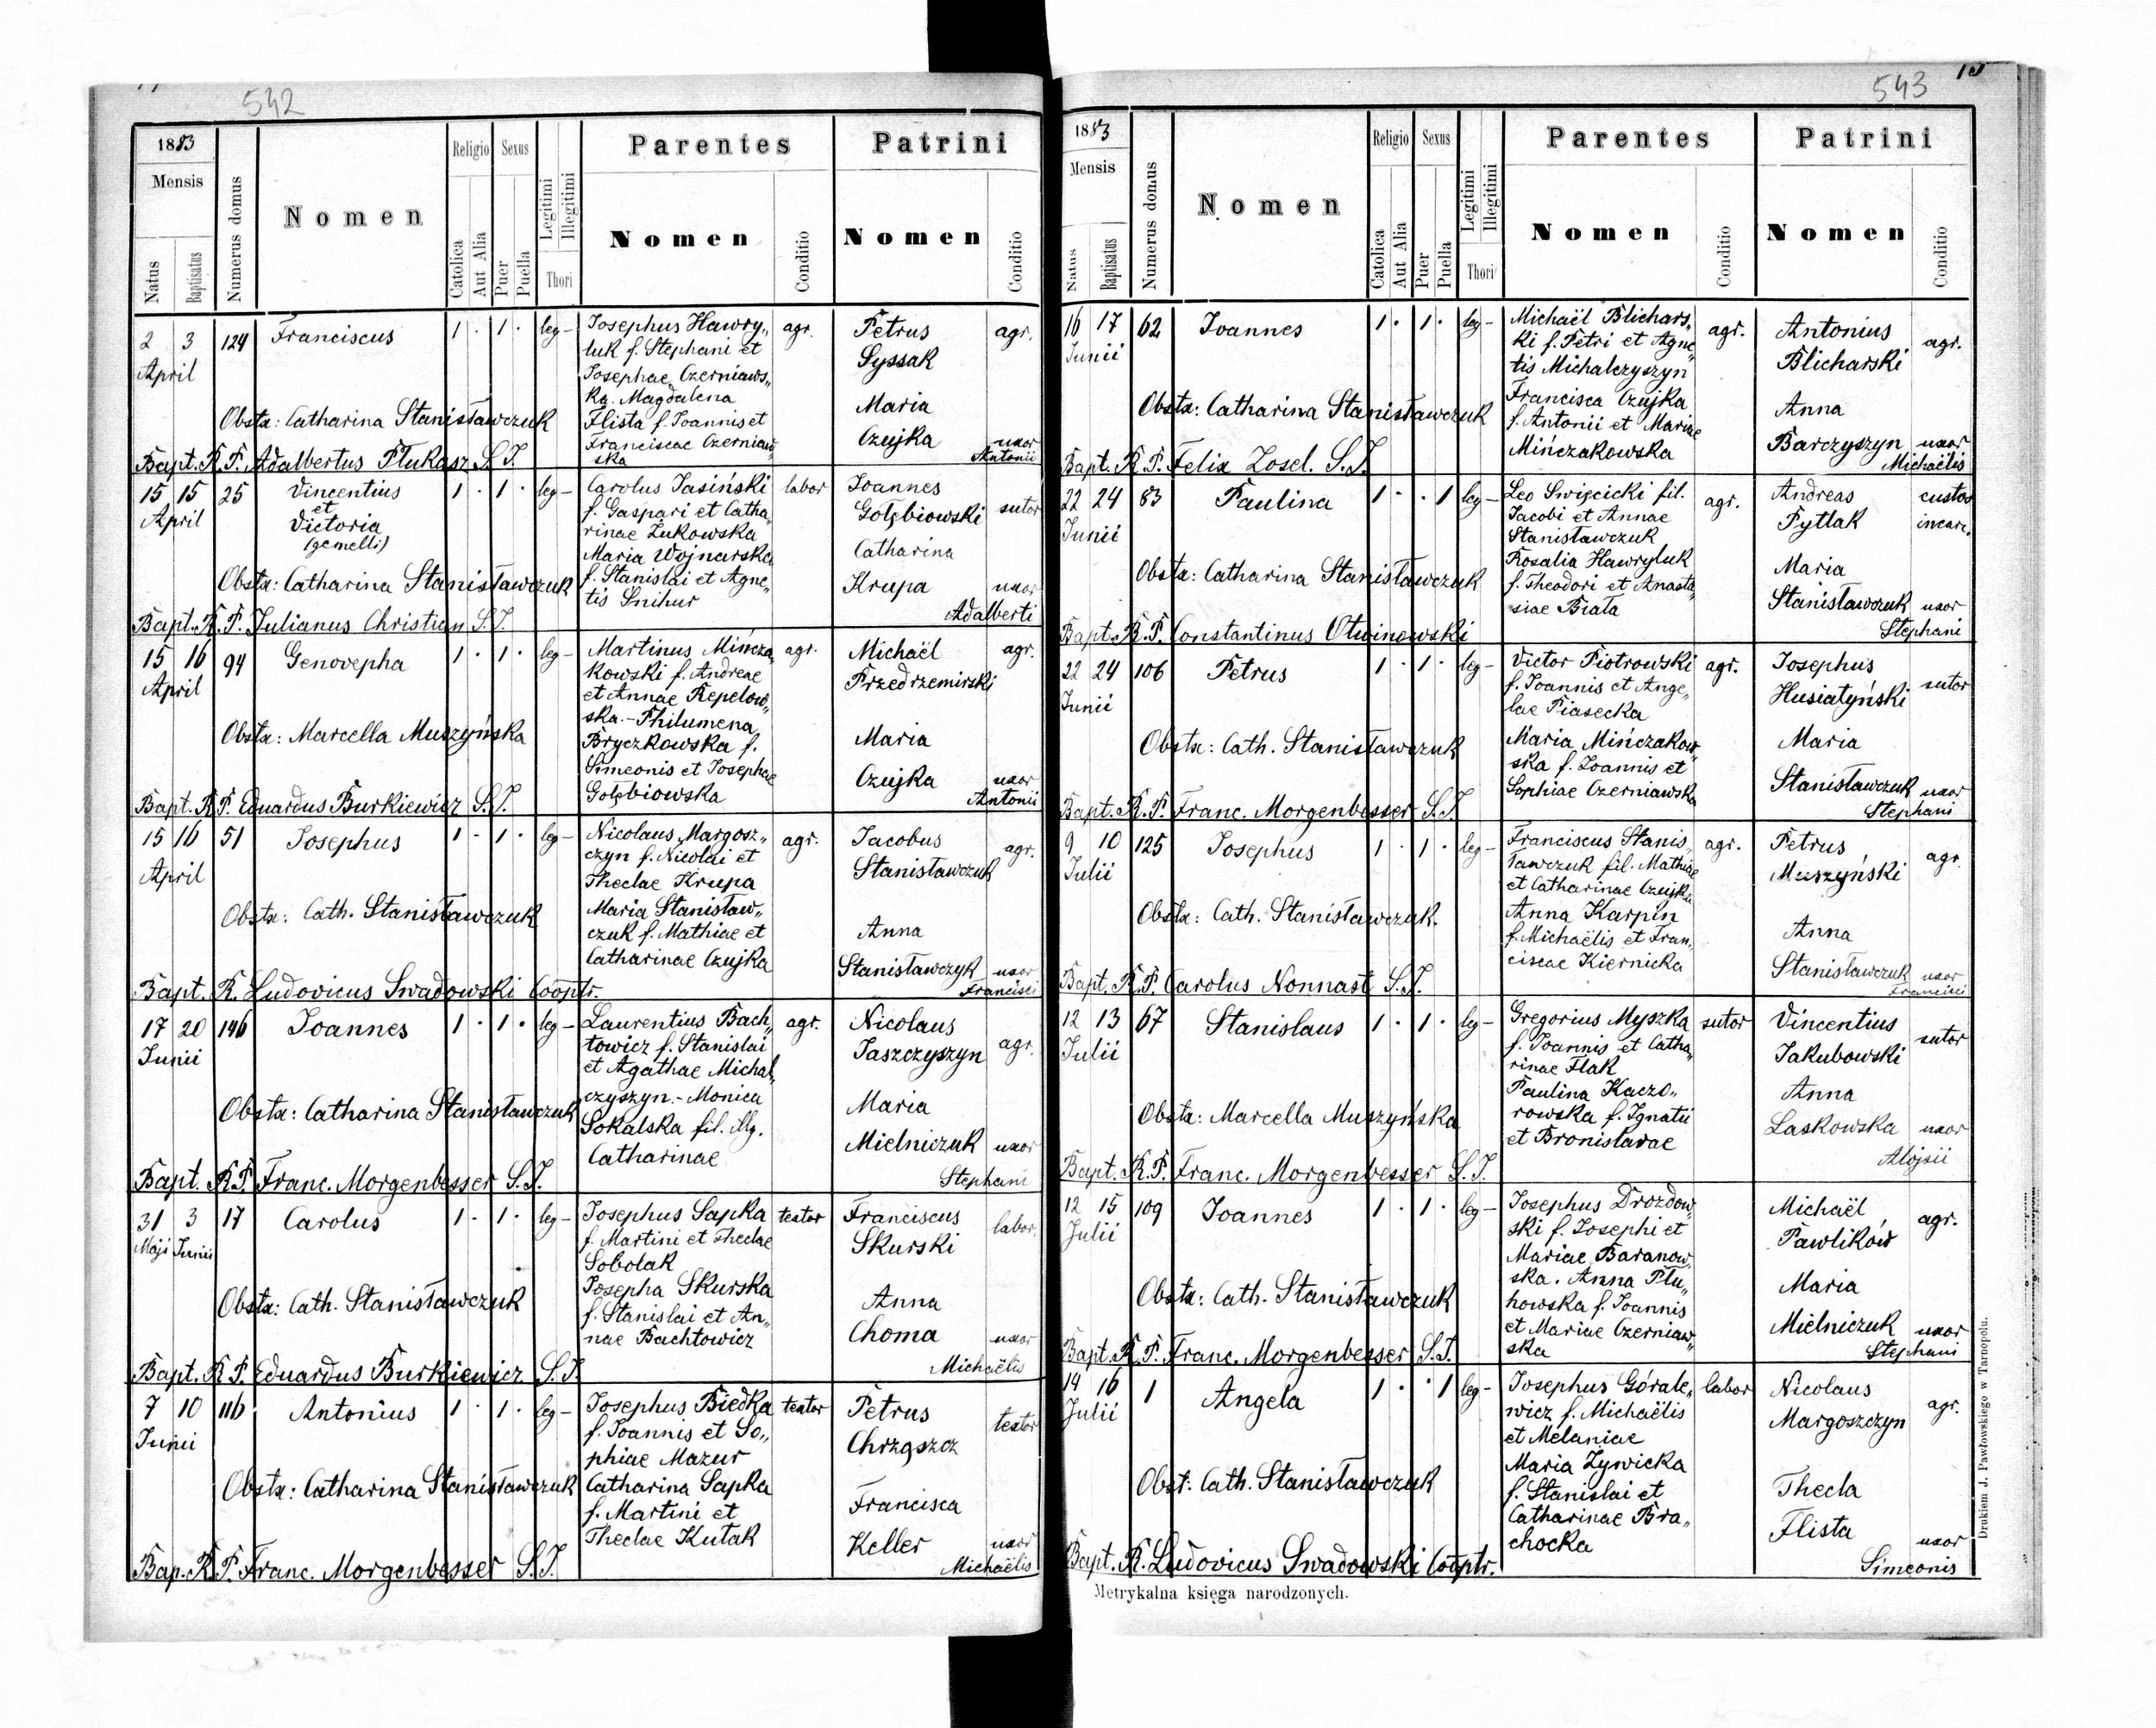 542
1883
Mensis
Natus
Baptisatus
Numerus domus
Nomen
Religio
Catolica
Aut Alia
Sexus
Puer
Puella
Legitimi
Illegitimi
Thori
Parentes
Nomen
Conditio
Patrini
Nomen
Conditio
2 3 124 Franciscus 1 · 1 · leg- Josephus Hawry„ agr. Petrus agr.
April
luk f. Stephani et Syssak
Josephae Czerniaws„
ka. Magdalena Maria
Obstx: Catharina Stanisławczuk Flista f. Joannis et
Franciscae Czerniaw„ Czujka uxor
ska Antonii
Bapt. R. P. Adalbertus Plukasz S. J.
15 15 25 Vincentius 1 · 1 · leg- Carolus Jasiński labor Joannes
April et f. Gaspari et Catha„ Gołębiowski sutor
Victoria rinae Żukowska
(gemelli) Maria Wojnarska Catharina
Obstx: Catharina Stanisławczuk f. Stanislai et Agne„ Krupa uxor
tis Snihur Adalberti
Bapt. R. P. Julianus Christian S. J.
15 16 94 Genovepha 1 · 1 · leg- Martinus Mińcza„ agr. Michaël agr.
April kowski f. Andreae Przedrzemirski
et Annae Repelow„
ska.- Philumena
Obstx: Marcella Muszyńska Bryczkowska f. Maria
Simeonis et Josephae Czujka uxor
Gołębiowska Antonii
Bapt. R. P. Eduardus Burkiewicz S. J.
15 16 51 Josephus 1 · 1 · leg- Nicolaus Margosz„ agr. Jacobus agr.
April czyn f. Nicolai et Stanisławczuk
Theclae Krupa
Obstx: Cath. Stanisławczuk Maria Stanisław„
czuk f. Mathiae et Anna
Catharinae Czujka Stanisławczyk uxor
Francisci
Bapt. R. Ludovicus Swadowski Cooptr.
17 20 146 Joannes 1 · 1 · leg- Laurentius Bach„ agr. Nicolaus
Junii towicz f. Stanislai Jaszczyszyn agr.
et Agathae Michal„
Obstx: Catharina Stanisławczuk czyszyn.- Monica Maria
Sokalska fil. illg. Mielniczuk uxor
Catharinae Stephani
Bapt. R. P. Franc. Morgenbesser S. J.
31 3 17 Carolus 1 · 1 · leg- Josephus Sapka textor Franciscus labor.
Maji Junii f. Martini et Theclae Skurski
Sobolak
Obstx: Cath. Stanisławczuk Josepha Skurska Anna
f. Stanislai et An„ Choma uxor
nae Bachtowicz Michaëlis
Bapt. R. P. Eduardus Burkiewicz S. J.
7 10 116 Antonius 1 · 1 · leg- Josephus Biedka textor Petrus textor
Junii f. Joannis et So„ Chrząszcz
phiae Mazur
Obstx: Catharina Stanisławczuk Catharina Sapka Francisca
f. Martini et
Theclae Kutak Keller uxor
Michaëlis
Bap. R. P. Franc. Morgenbesser S. J.
543
1883
Mensis
Natus
Baptisatus
Numerus domus
Nomen
Religio
Catolica
Aut Alia
Sexus
Puer
Puella
Legitimi
Illegitimi
Thori
Parentes
Nomen
Conditio
Patrini
Nomen
Conditio
16 17 62 Joannes 1 · 1 · leg- Michaël Blichars„ agr. Antonius agr.
Junii ki f. Petri et Agne„ Blicharski
tis Michalczyszyn
Obstx: Catharina Stanisławczuk Francisca Czujka Anna
f. Antonii et Mariae Barczyszyn uxor
Mińczakowska Michaëlis
Bapt. R. P. Felix Zosel. S. J.
22 24 83 Paulina 1 · · 1 leg- Leo Swięcicki fil. agr. Andreas custos
Junii Jacobi et Annae Pytlak incarc.
Stanisławczuk
Obstx: Catharina Stanisławczuk Rosalia Hawryluk Maria
f. Theodori et Anasta„ Stanisławczuk uxor
siae Biała Stephani
Bapt. R. P. Constantinus Otwinowski
22 24 106 Petrus 1 · 1 · leg- Victor Piotrowski agr. Josephus sutor
Junii f. Joannis et Ange„ Husiatyński
lae Piasecka
Obstx: Cath. Stanisławczuk Maria Mińczakow„ Maria
ska f. Joannis et Stanisławczuk uxor
Sophiae Czerniawska Stephani
Bapt. R. P. Franc. Morgenbesser S. J.
9 10 125 Josephus 1 · 1 · leg- Franciscus Stanis„ agr. Petrus agr.
Julii ławczuk fil. Mathiae Muszyński
et Catharinae Czujka
Obstx: Cath. Stanisławczuk. Anna Karpin Anna
f. Michaëlis et Fran„ Stanisławczuk uxor
ciscae Kiernicka Francisci
Bapt. R. P. Carolus Nonnast S. J.
12 13 67 Stanislaus 1 · 1 · leg- Gregorius Myszka sutor Vincentius sutor
Julii f. Joannis et Catha„ Jakubowski
rinae Flak
Obstx: Marcella Muszyńska Paulina Kaczo„ Anna
rowska f. Ignatii Laskowska uxor
et Bronislavae Alojsii
Bapt. R. P. Franc. Morgenbesser S. J.
12 15 109 Joannes 1 · 1 · leg- Josephus Drozdow„ Michaël agr.
Julii ski f. Josephi et Pawlików
Mariae Baranow„
Obstx: Cath. Stanisławczuk ska. Anna Płu„ Maria
howska f. Joannis
et Mariae Czerniaw„ Mielniczuk uxor
ska Stephani
Bapt. R. P. Franc. Morgenbesser S. J.
14 16 1 Angela 1 · · 1 leg- Josephus Górale„ labor Nicolaus agr.
Julii wicz f. Michaëlis Margoszczyn
et Melaniae
Obst: Cath. Stanisławczuk Maria Żywicka Thecla
f. Stanislai et
Catharinae Bra„ Flista uxor
chocka Simeonis
Bapt. R. Ludovicus Swadowski Cooptr.
Metrykalna księga narodzonych.
Drukiem J. Pawłowskiego w Tarnopolu.